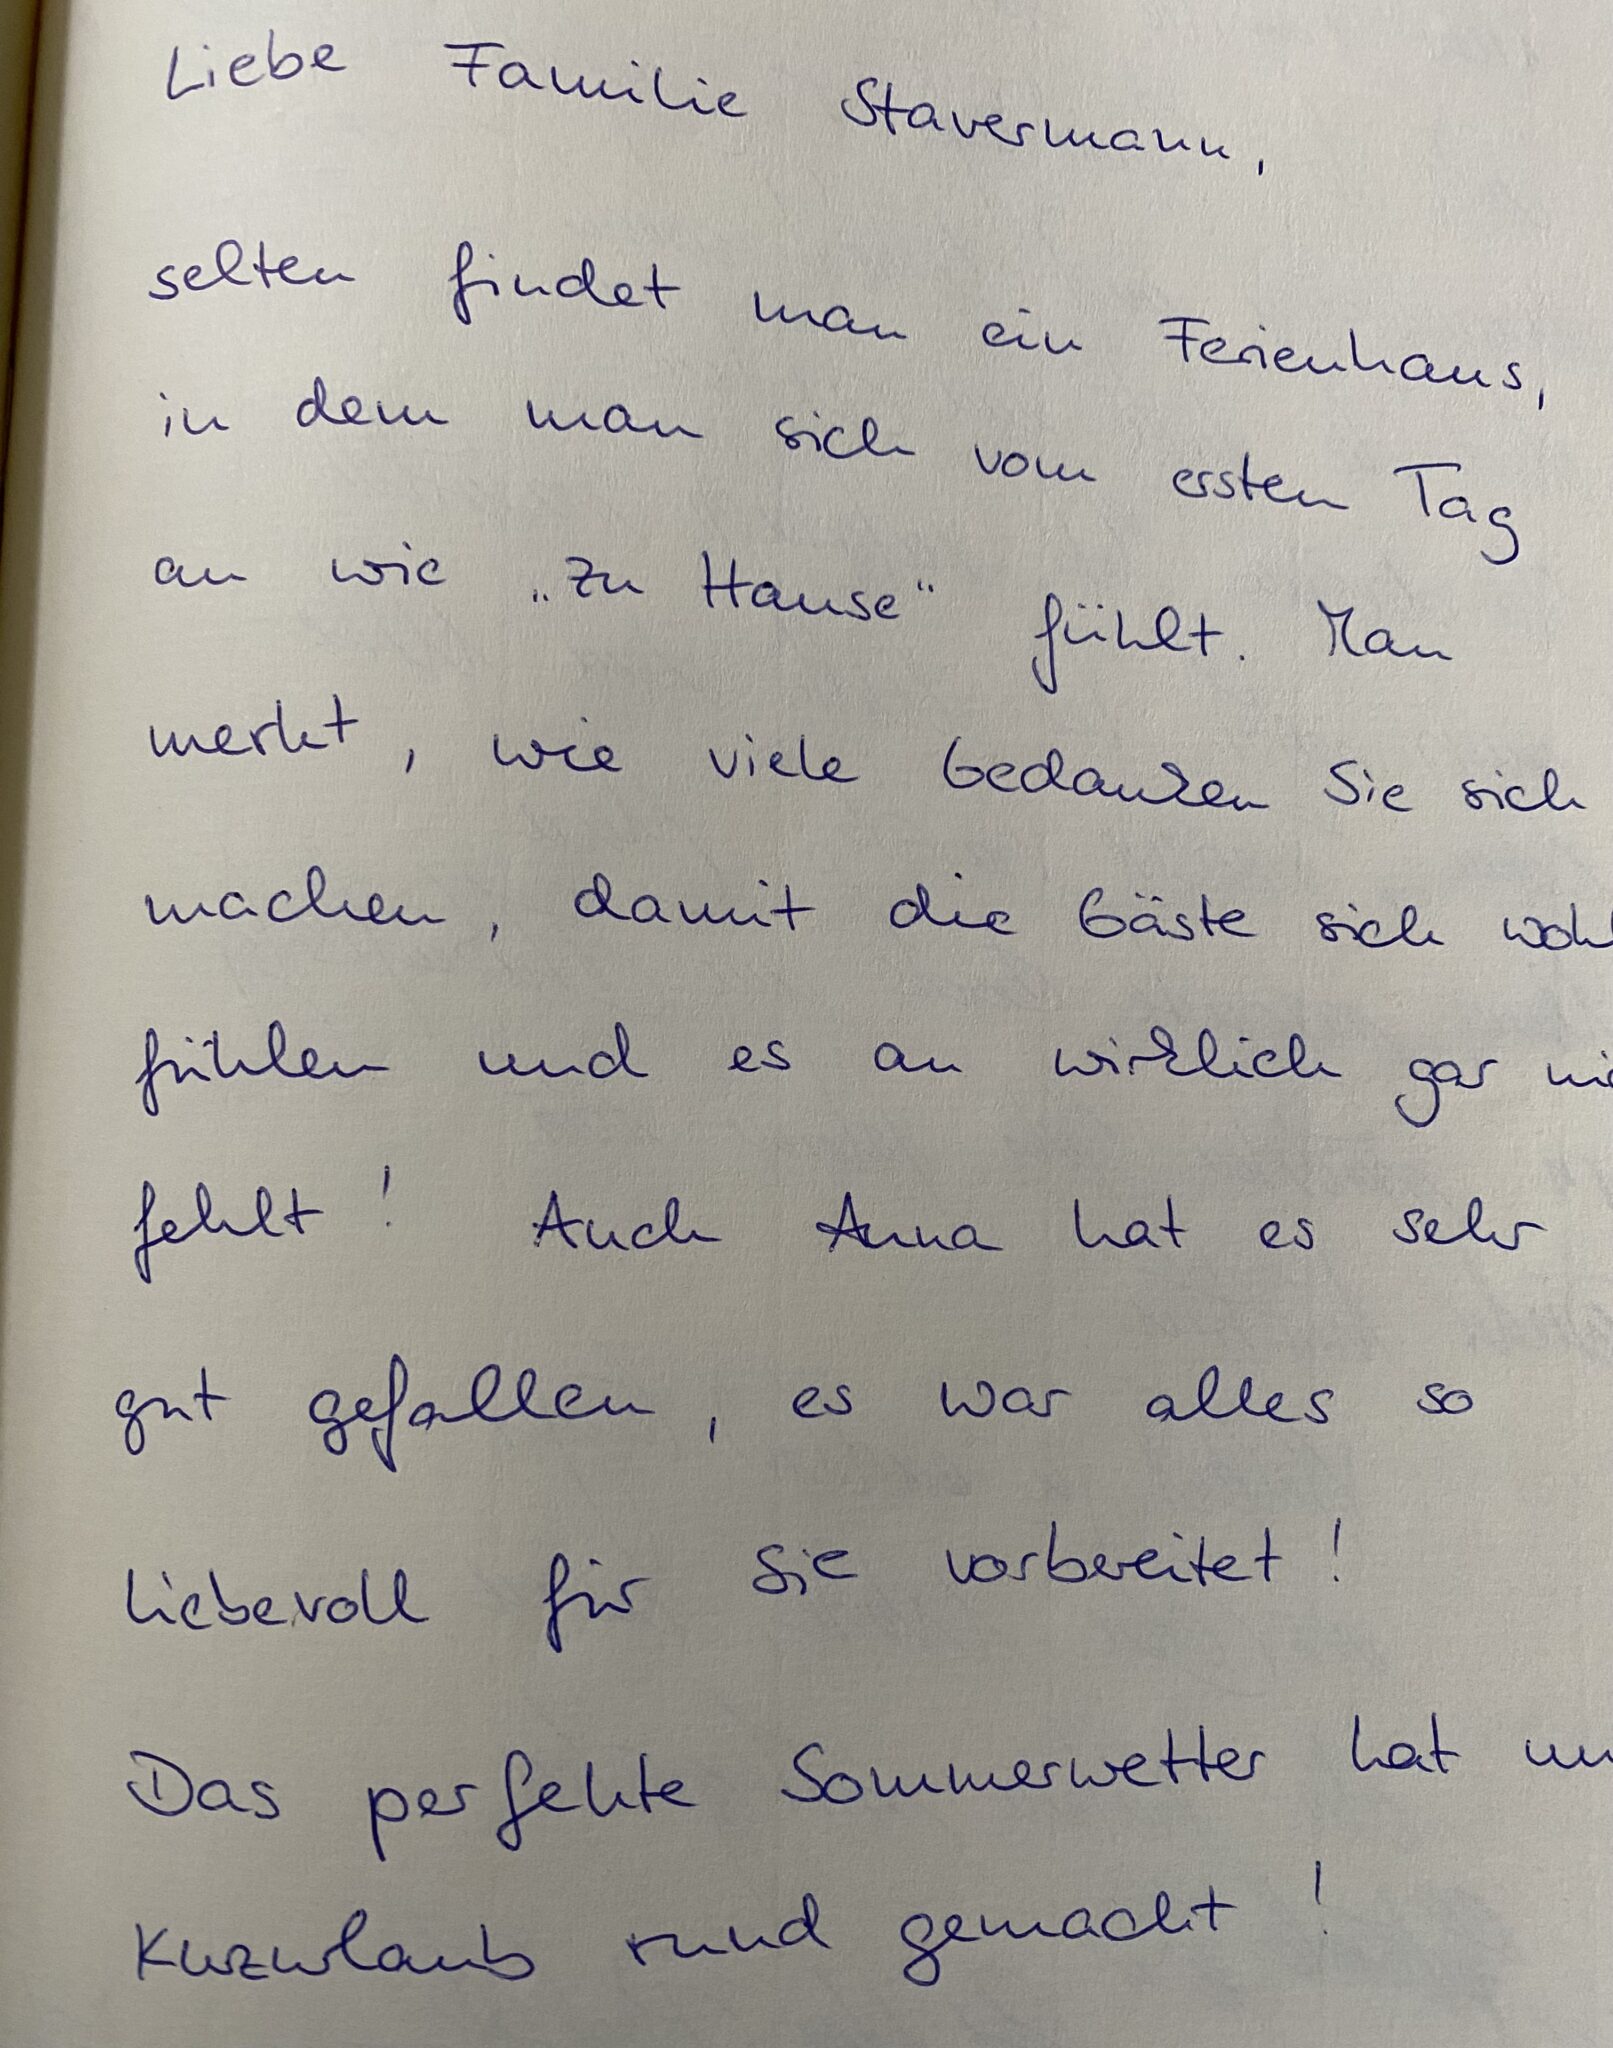 Liebe Familie Stavermann,
selten findet man ein Ferienhaus,
in dem man sich vom ersten Tag
an wie „zu Hause" fühlt. Man
merkt, wie viele Gedanken Sie sich
machen, damit die Gäste sich wohl
fühlen und es an wirklich gar
fehlt! Auch Anna hat es sehr
gut gefallen, es war alles so
liebevoll für sie vorbereitet!
Das perfekte Sommerwetter hat
Kurzurlaub rund gemacht!